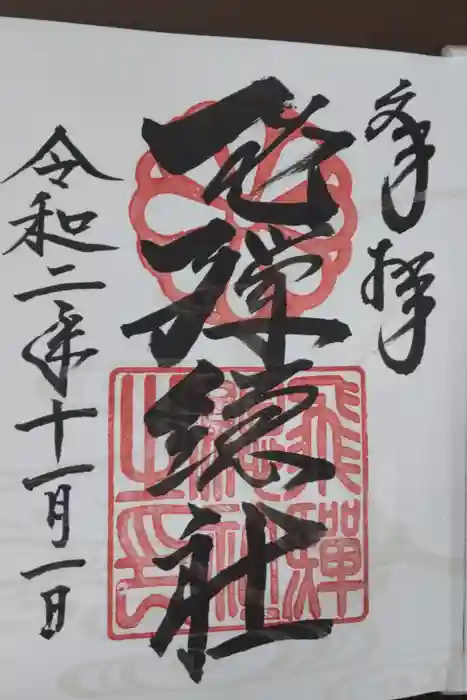 奉拝
飛騨総社
令和二年十一月一日
飛驒
總社
之印